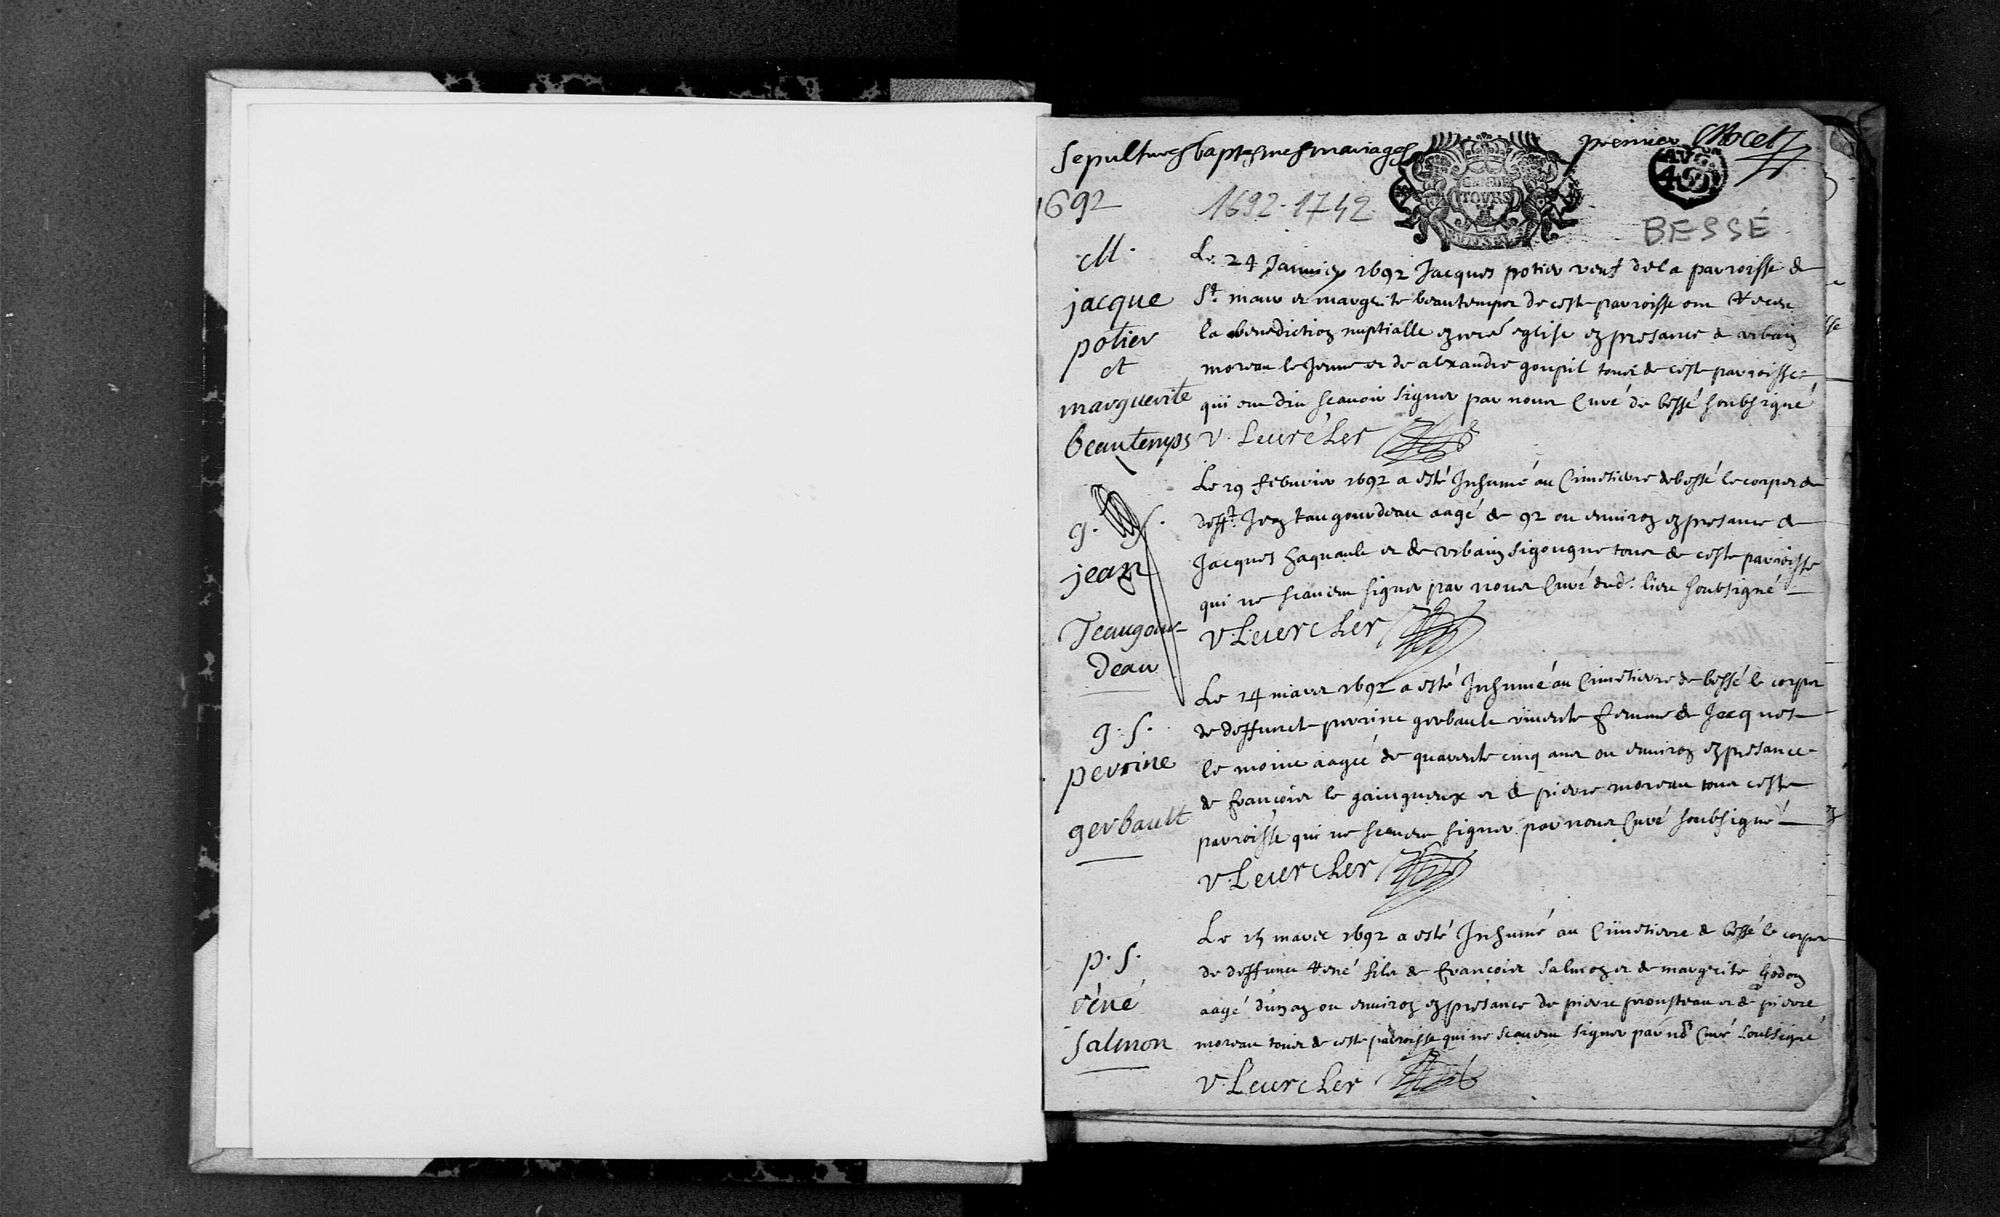 Sepultures baptesmes mariages
premier Mocet
GENER
TOURS
1692
1692-1742
BESSÉ
M.
jacque
potier
et
marguerite
beautemps
Le 24 Janvier 1692 Jacques potier veuf de la parroisse de
St. maur et margrite beautemps de ceste parroisse ont Receu
la benediction nuptialle en nre église en presance de urbain
moreau le Jeune et de alexandre goupil tous de ceste parroisse
qui ont dit scavoir signer par nous Curé de bessé soubsigné
V. Leurcher
g. S.
jean
Teaugour-
deau
Le 29 febvrier 1692 a esté Inhumé au Cimetierre de bessé le corps de
defft. Jean taugourdeau aagé de 92 ou environ en presance de
Jacques haguault et de urbain sigougne tous de ceste parroisse
qui ne scavent signer par nous Curé dud. lieu soubsigné
V. Leuercher
g. S.
perrine
gerbault
Le 14 mars 1692 a esté Inhumé au Cimetierre de bessé le corps
de deffunct perrine gerbault vivente femme de Jacques
le moine aagée de quarente cinq ans ou environ en presance
de francois le gaingneux et de pierre moreau tous ceste
parroisse qui ne scavent signer par nous Curé soubsigné
V. Leuercher
p. S.
réné
Salmon
Le 15 mars 1692 a esté Inhumé au Cimetierre de bessé le corps
de deffunct René fils de francois Salmon et de margrite Godon
aagé d'un an ou environ en presance de pierre frousteau et de pierre
moreau tous de ceste parroisse qui ne scavent signer par nous Curé Soubsigné
V. Leuercher